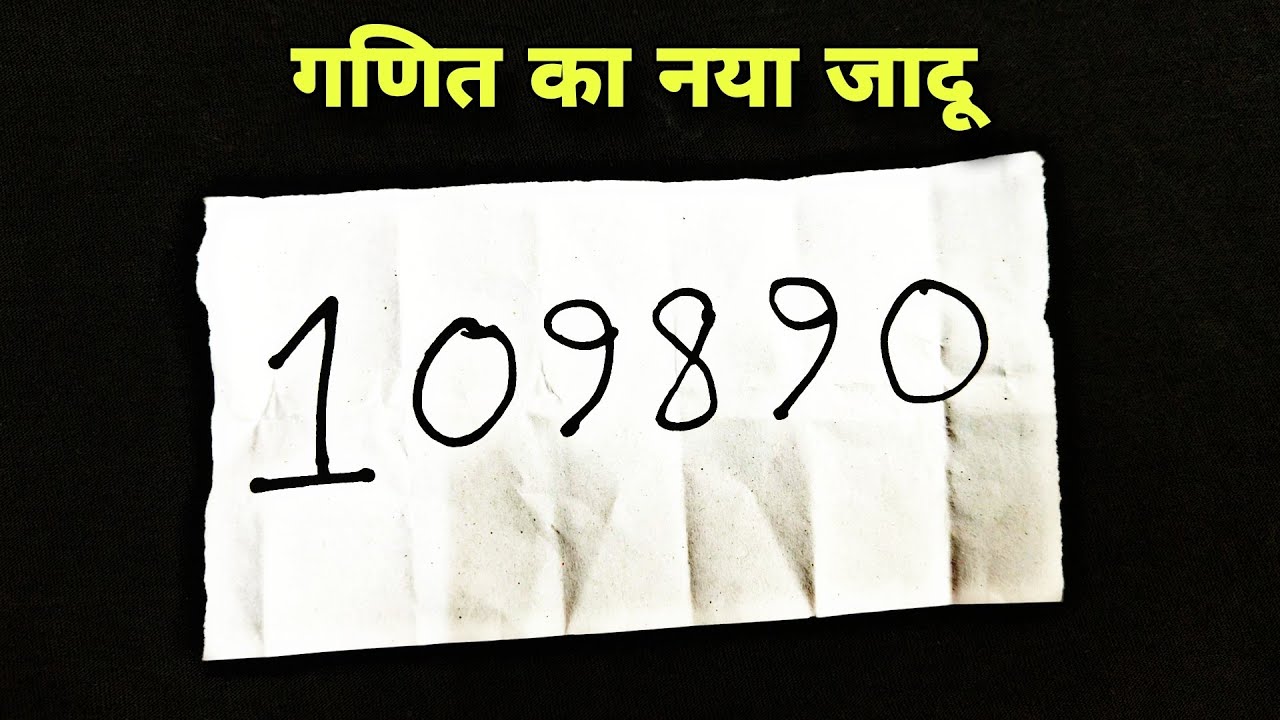 गणित का नया जादू
109890